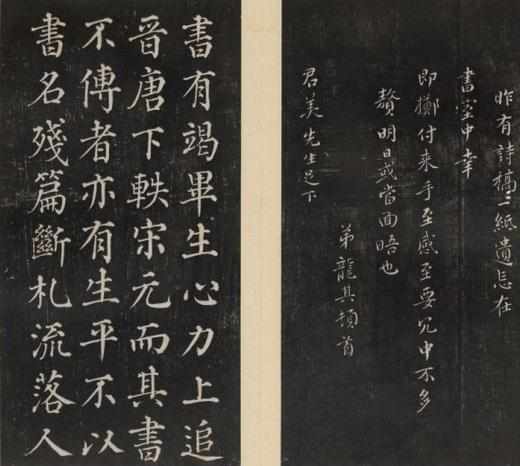 昨有詩稿二紙遺忘在
書室中幸
即擲付来手至感至要冗中不多
贅明日或當面晤也
弟龍其頓首
君美先生足下
書有竭畢生心力上追
晉唐下軼宋元而其書
不傳者亦有生平不以
書名殘篇斷札流落人